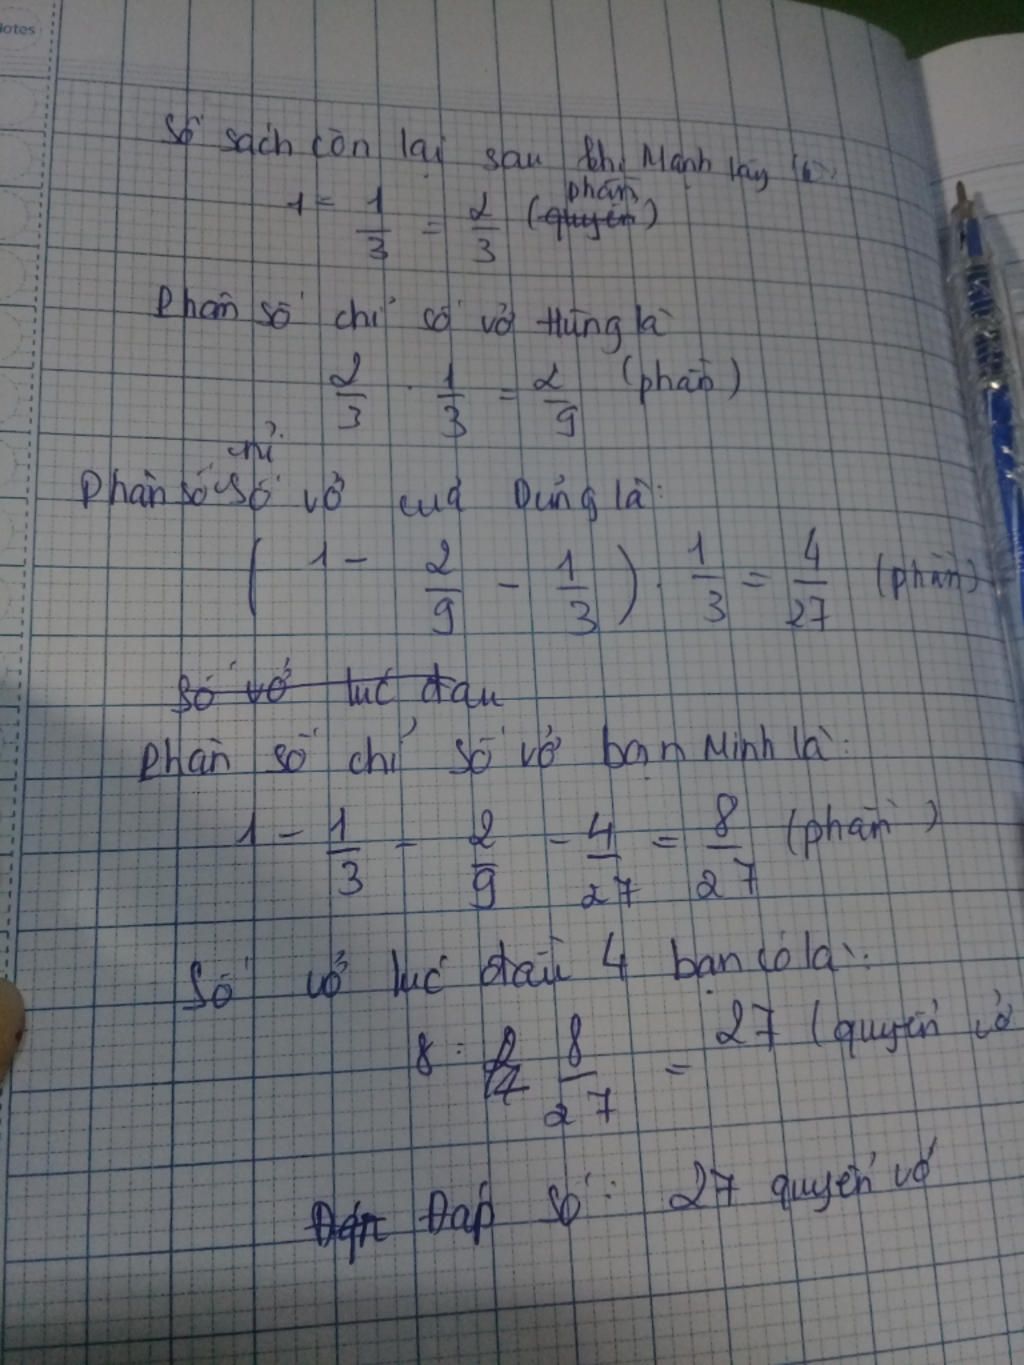 otes
Số sách còn lại sau khi Mạnh lấy là:
1 - 1/3 = 2/3 (quyển) phần
Phân số chỉ số vở Hùng là
2/3 . 1/3 = 2/9 (phần)
Phân số chỉ số vở của Dũng là:
(1 - 2/9 - 1/3) . 1/3 = 4/27 (phần)
Số vở lúc đầu
Phân số chỉ số vở bạn Minh là:
1 - 1/3 - 2/9 - 4/27 = 8/27 (phần)
Số vở lúc đầu 4 bạn có là:
8 : 8/27 = 27 (quyển vở
Đáp số: 27 quyển vở